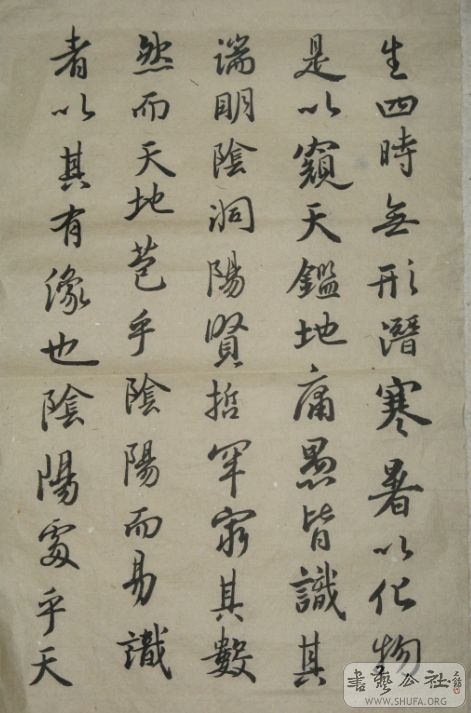 生四時無形潛寒暑以化物
是以窺天鑑地庸愚皆識其
端明陰洞陽賢哲罕窮其數
然而天地苞乎陰陽而易識
者以其有像也陰陽處乎天
書藝公社
WWW.SHUFA.ORG